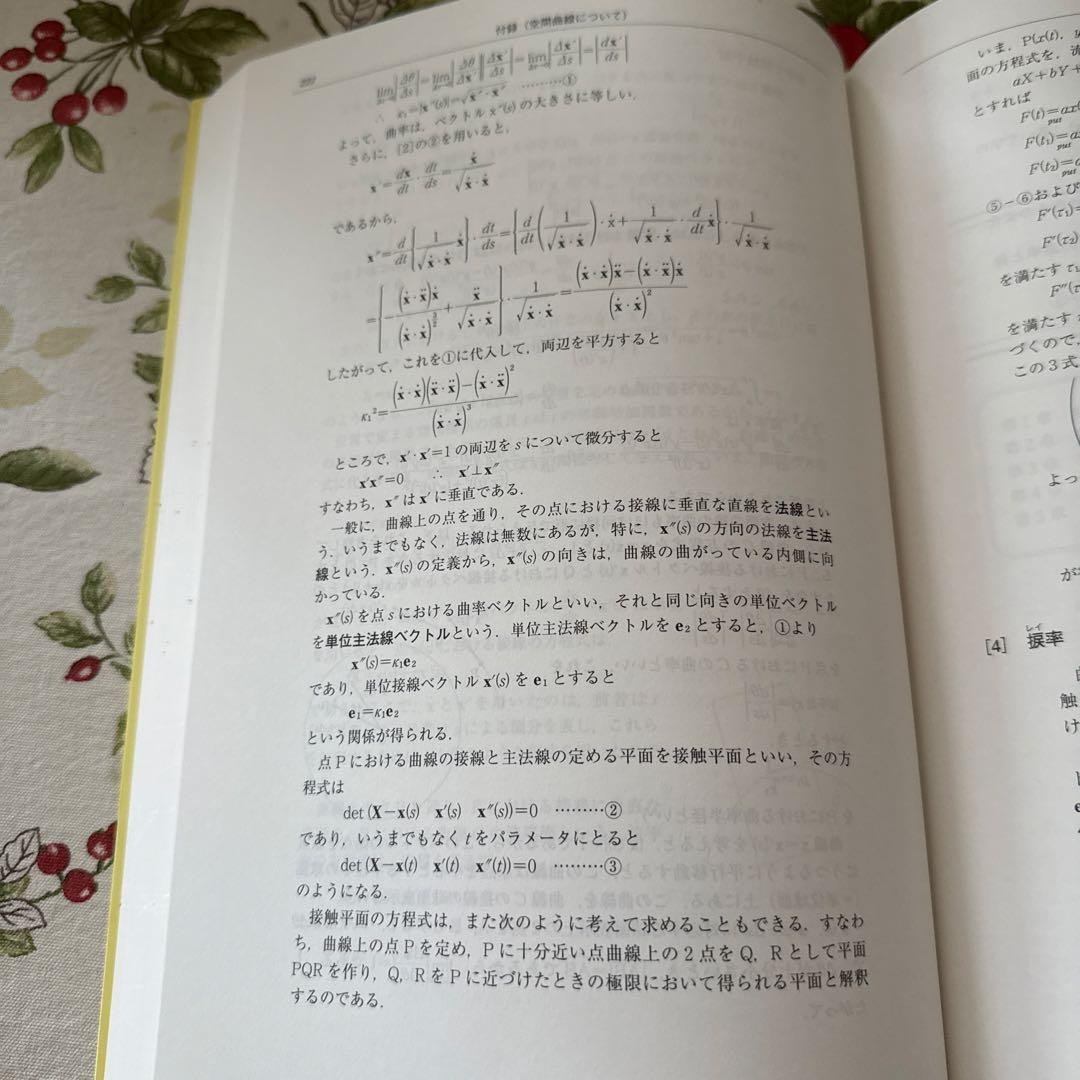 付録(空間曲線について)
lim|Δθ/Δs|=lim|Δθ/Δx′||Δx′/Δs|=lim|Δx′/Δs|=|dx′/ds|
∴ κ₁=|x″(s)|=√(x″・x″) ………①
よって,曲率は,ベクトルx″(s)の大きさに等しい.
さらに,[2]の②を用いると,
x′=dx/dt・dt/ds=ẋ/√(ẋ・ẋ)
であるから,
x″=d/dt{1/√(ẋ・ẋ) ẋ}・dt/ds={d/dt(1/√(ẋ・ẋ))・ẋ+1/√(ẋ・ẋ)・d/dt ẋ}・1/√(ẋ・ẋ)
={-(ẋ・ẍ)ẋ/(ẋ・ẋ)^(3/2)+ẍ/√(ẋ・ẋ)}・1/√(ẋ・ẋ)=((ẋ・ẋ)ẍ-(ẋ・ẍ)ẋ)/(ẋ・ẋ)²
したがって,これを①に代入して,両辺を平方すると
κ₁²=((ẋ・ẋ)(ẍ・ẍ)-(ẋ・ẍ)²)/(ẋ・ẋ)³
ところで,x′・x′=1の両辺をsについて微分すると
x′x″=0 ∴ x′⊥x″
すなわち,x″はx′に垂直である.
一般に,曲線上の点を通り,その点における接線に垂直な直線を法線とい
う.いうまでもなく,法線は無数にあるが,特に,x″(s)の方向の法線を主法
線という.x″(s)の定義から,x″(s)の向きは,曲線の曲がっている内側に向
かっている.
x″(s)を点sにおける曲率ベクトルといい,それと同じ向きの単位ベクトル
を単位主法線ベクトルという.単位主法線ベクトルをe₂とすると,①より
x″(s)=κ₁e₂
であり,単位接線ベクトルx′(s)をe₁とすると
e₁=κ₁e₂
という関係が得られる.
点Pにおける曲線の接線と主法線の定める平面を接触平面といい,その方
程式は
det(X-x(s) x′(s) x″(s))=0 ………②
であり,いうまでもなくtをパラメータにとると
det(X-x(t) x′(t) x″(t))=0 ………③
のようになる.
接触平面の方程式は,また次のように考えて求めることもできる.すなわ
ち,曲線上の点Pを定め,Pに十分近い点曲線上の2点をQ,Rとして平面
PQRを作り,Q,RをPに近づけたときの極限において得られる平面と解釈
するのである.
いま,P(x(t),
面の方程式を,
aX+bY+
とすれば
F(t)=a
put
F(t₁)=a
put
F(t₂)=a
put
⑤-⑥および
F′(τ₁)=
F′(τ₂)
を満たすτ₁
F″(τ
を満たす
づくので,
この3式
よっ
が
[4] 捩率
レイ
触
け
e